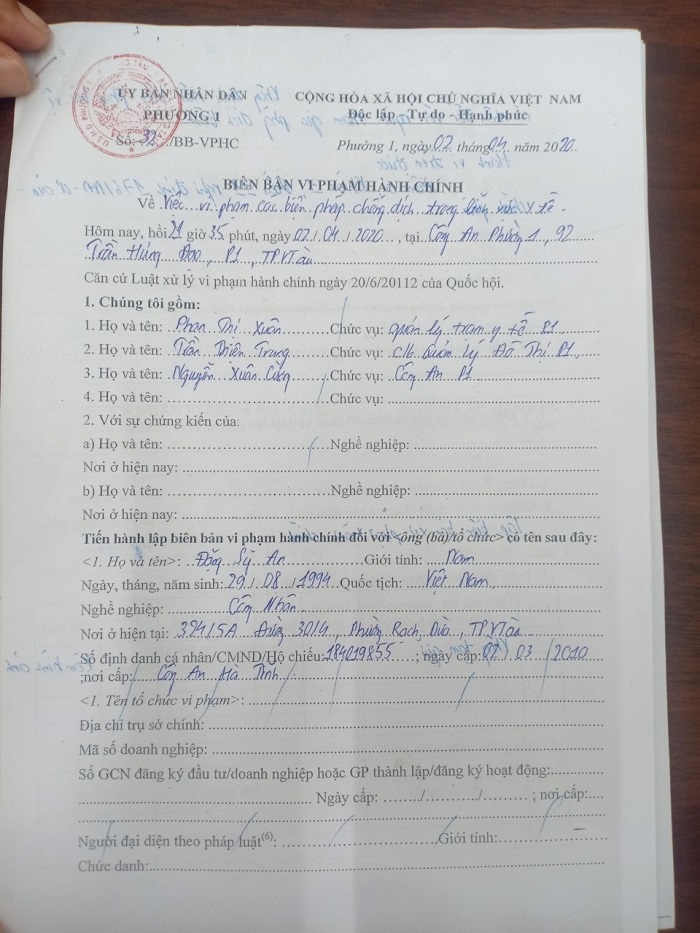 ỦY BAN NHÂN DÂN CỘNG HÒA XÃ HỘI CHỦ NGHĨA VIỆT NAM
PHƯỜNG 1 Độc lập - Tự do - Hạnh phúc
Số: 32/BB-VPHC Phường 1, ngày 02 tháng 04 năm 2020
BIÊN BẢN VI PHẠM HÀNH CHÍNH
Về Việc vi phạm các biện pháp chống dịch trong lĩnh vực y tế.
Hôm nay, hồi 21 giờ 35 phút, ngày 02/04/2020, tại Công An Phường 1, 92
Trần Hưng Đạo, P1, TPVTàu
Căn cứ Luật xử lý vi phạm hành chính ngày 20/6/20112 của Quốc hội.
1. Chúng tôi gồm:
1. Họ và tên: Phan Thị Xuân Chức vụ: quản lý trạm y tế P1
2. Họ và tên: Trần Thiên Trung Chức vụ: Quản Lý Đô Thị P1
3. Họ và tên: Nguyễn Xuân Chức vụ: Công An P1
4. Họ và tên: Chức vụ:
2. Với sự chứng kiến của:
a) Họ và tên: Nghề nghiệp:
Nơi ở hiện nay:
b) Họ và tên: Nghề nghiệp:
Nơi ở hiện nay:
Tiến hành lập biên bản vi phạm hành chính đối với <ông (bà)/tổ chức> có tên sau đây:
<1. Họ và tên>: Đặng Sỹ An Giới tính: Nam
Ngày, tháng, năm sinh: 29/08/1994 Quốc tịch: Việt Nam
Nghề nghiệp: Công Nhân
Nơi ở hiện tại: Đường 30/4, Phường Rạch Dừa, TPVTàu
Số định danh cá nhân/CMND/Hộ chiếu: 184019855; ngày cấp: 02/03/2010
;nơi cấp: Công An Hà Tĩnh
<1. Tên tổ chức vi phạm>:
Địa chỉ trụ sở chính:
Mã số doanh nghiệp:
Số GCN đăng ký đầu tư/doanh nghiệp hoặc GP thành lập/đăng ký hoạt động:
Ngày cấp: ....../......./........ ; nơi cấp:
Người đại diện theo pháp luật(6): Giới tính:
Chức danh: